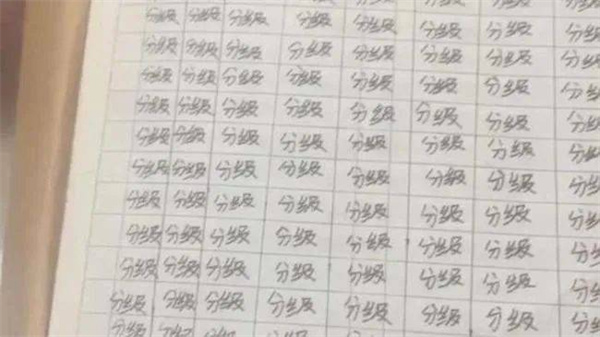 分级 分级 分级 分级 分级 分级 分级 分级
分级 分级 分级 分级 分级 分级 分级 分级
分级 分级 分级 分级 分级 分级 分级 分级
分级 分级 分级 分级 分级 分级 分级 分级
分级 分级 分级 分级 分级 分级 分级 分级
分级 分级 分级 分级 分级 分级 分级 分级
分级 分级 分级 分级 分级 分级 分级 分
分级 分级 分级 分级 分级 分级 分级 分
分级 分级 分级 分级 分级 分级 分级 分
分级 分级 分级 分级 分级 分级 分级 分
分级 分级 分级 分级 分级 分级 分级